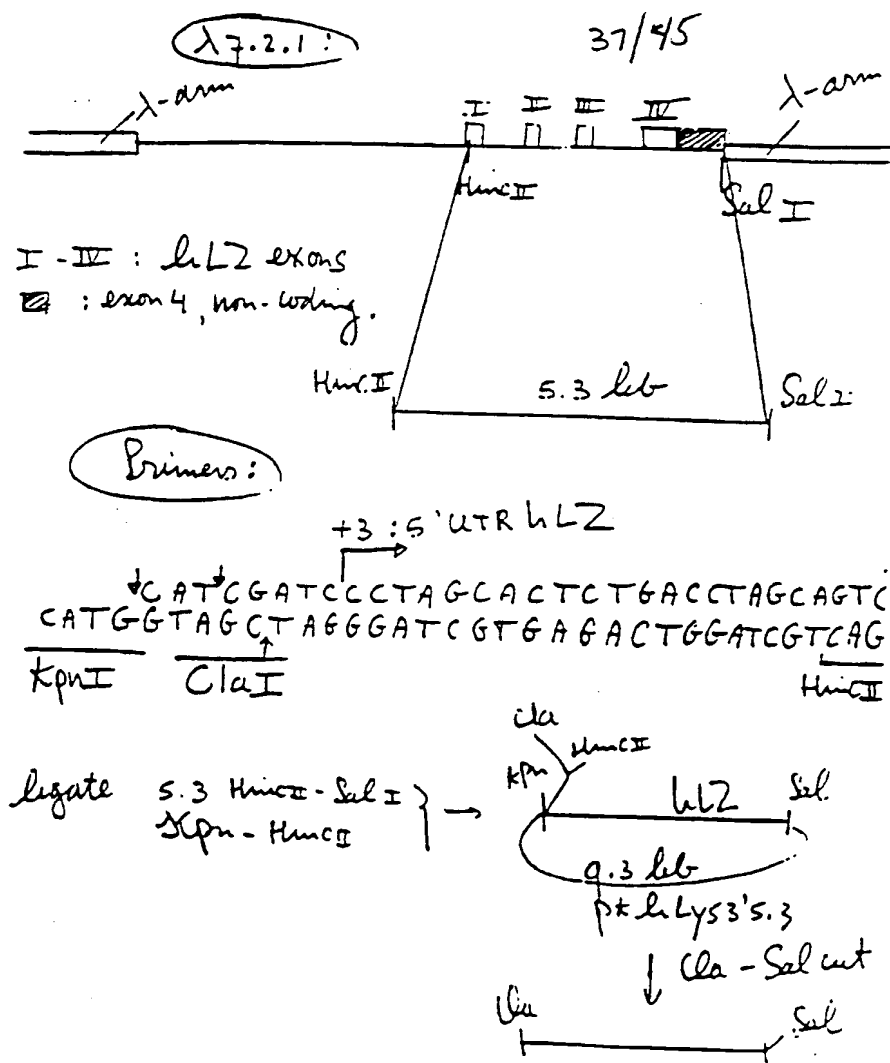 λ7.2.1:
37/45
λ-arm
I II III IV
λ-arm
HincII
Sal I
I - IV : hLZ exons
: exon 4, non-coding.
HincII
5.3 kb
Sal I
Primers:
+3 : 5' UTR hLZ
CATCGATCCCTAGCACTCTGACCTAGCAGTC
CATGGTAGCTAGGGATCGTGAGACTGGATCGTCAG
KpnI
ClaI
HincII
Cla
HincII
Kpn
hLZ
Sal
ligate 5.3 HincII-Sal I
Kpn-HincII
9.3 kb
hLys3'5.3
Cla - Sal cut
Cla
Sal